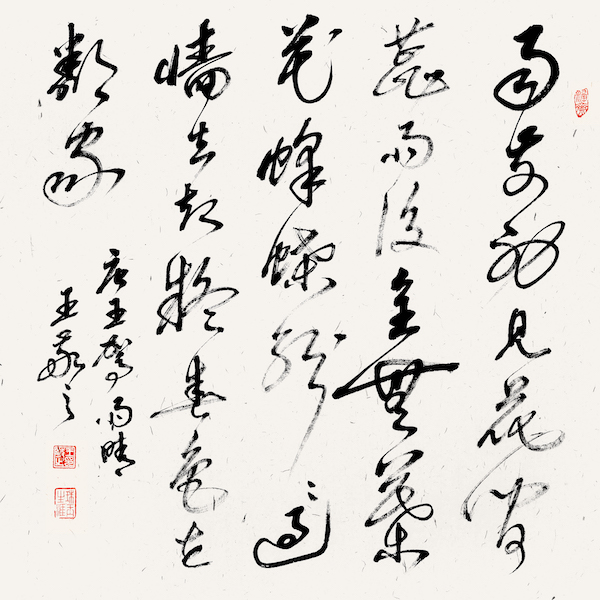 雨前初見花間
蕊雨後全無葉
花蜂蝶紛〻過
墻去却疑春色在
鄰家
唐王駕雨晴
王敬之